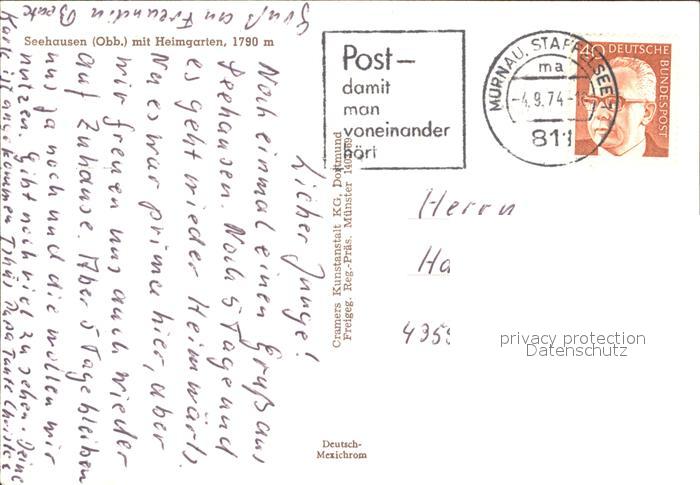 Seehausen (Obb.) mit Heimgarten, 1790 m
Gruß an Freundin Beate
Licher Junge!
Noch einmal einen Gruß aus
Seehausen. Noch 5 Tage und
es geht wieder Heimwärts.
Na es war prima hier, aber
wir freuen uns auch wieder
auf Zuhause. Aber 5 Tage bleiben
uns ja noch und die wollen wir
nutzen. Gibt noch viel zu sehen. Deine
Karte ist angekommen Tschüs Papa Tante Christel
Cramers Kunstanstalt KG, Dortmund
Freigeg. Reg.-Präs. Münster
Deutsch-
Mexichrom
Post–
damit
man
voneinander
hört
MURNAU, STAFFELSEE
ma
–4.9.74–
811
40 DEUTSCHE
BUNDESPOST
Herrn
Ha
435
privacy protection
Datenschutz